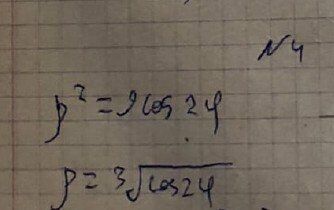 N4
ρ² = 9cos2φ
ρ = 3√cos2φ